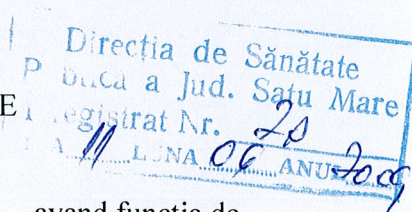 Direcția de Sănătate
Publică a Jud. Satu Mare
E
Înregistrat Nr.
11 LUNA 06 ANUL 2009
avand functia de